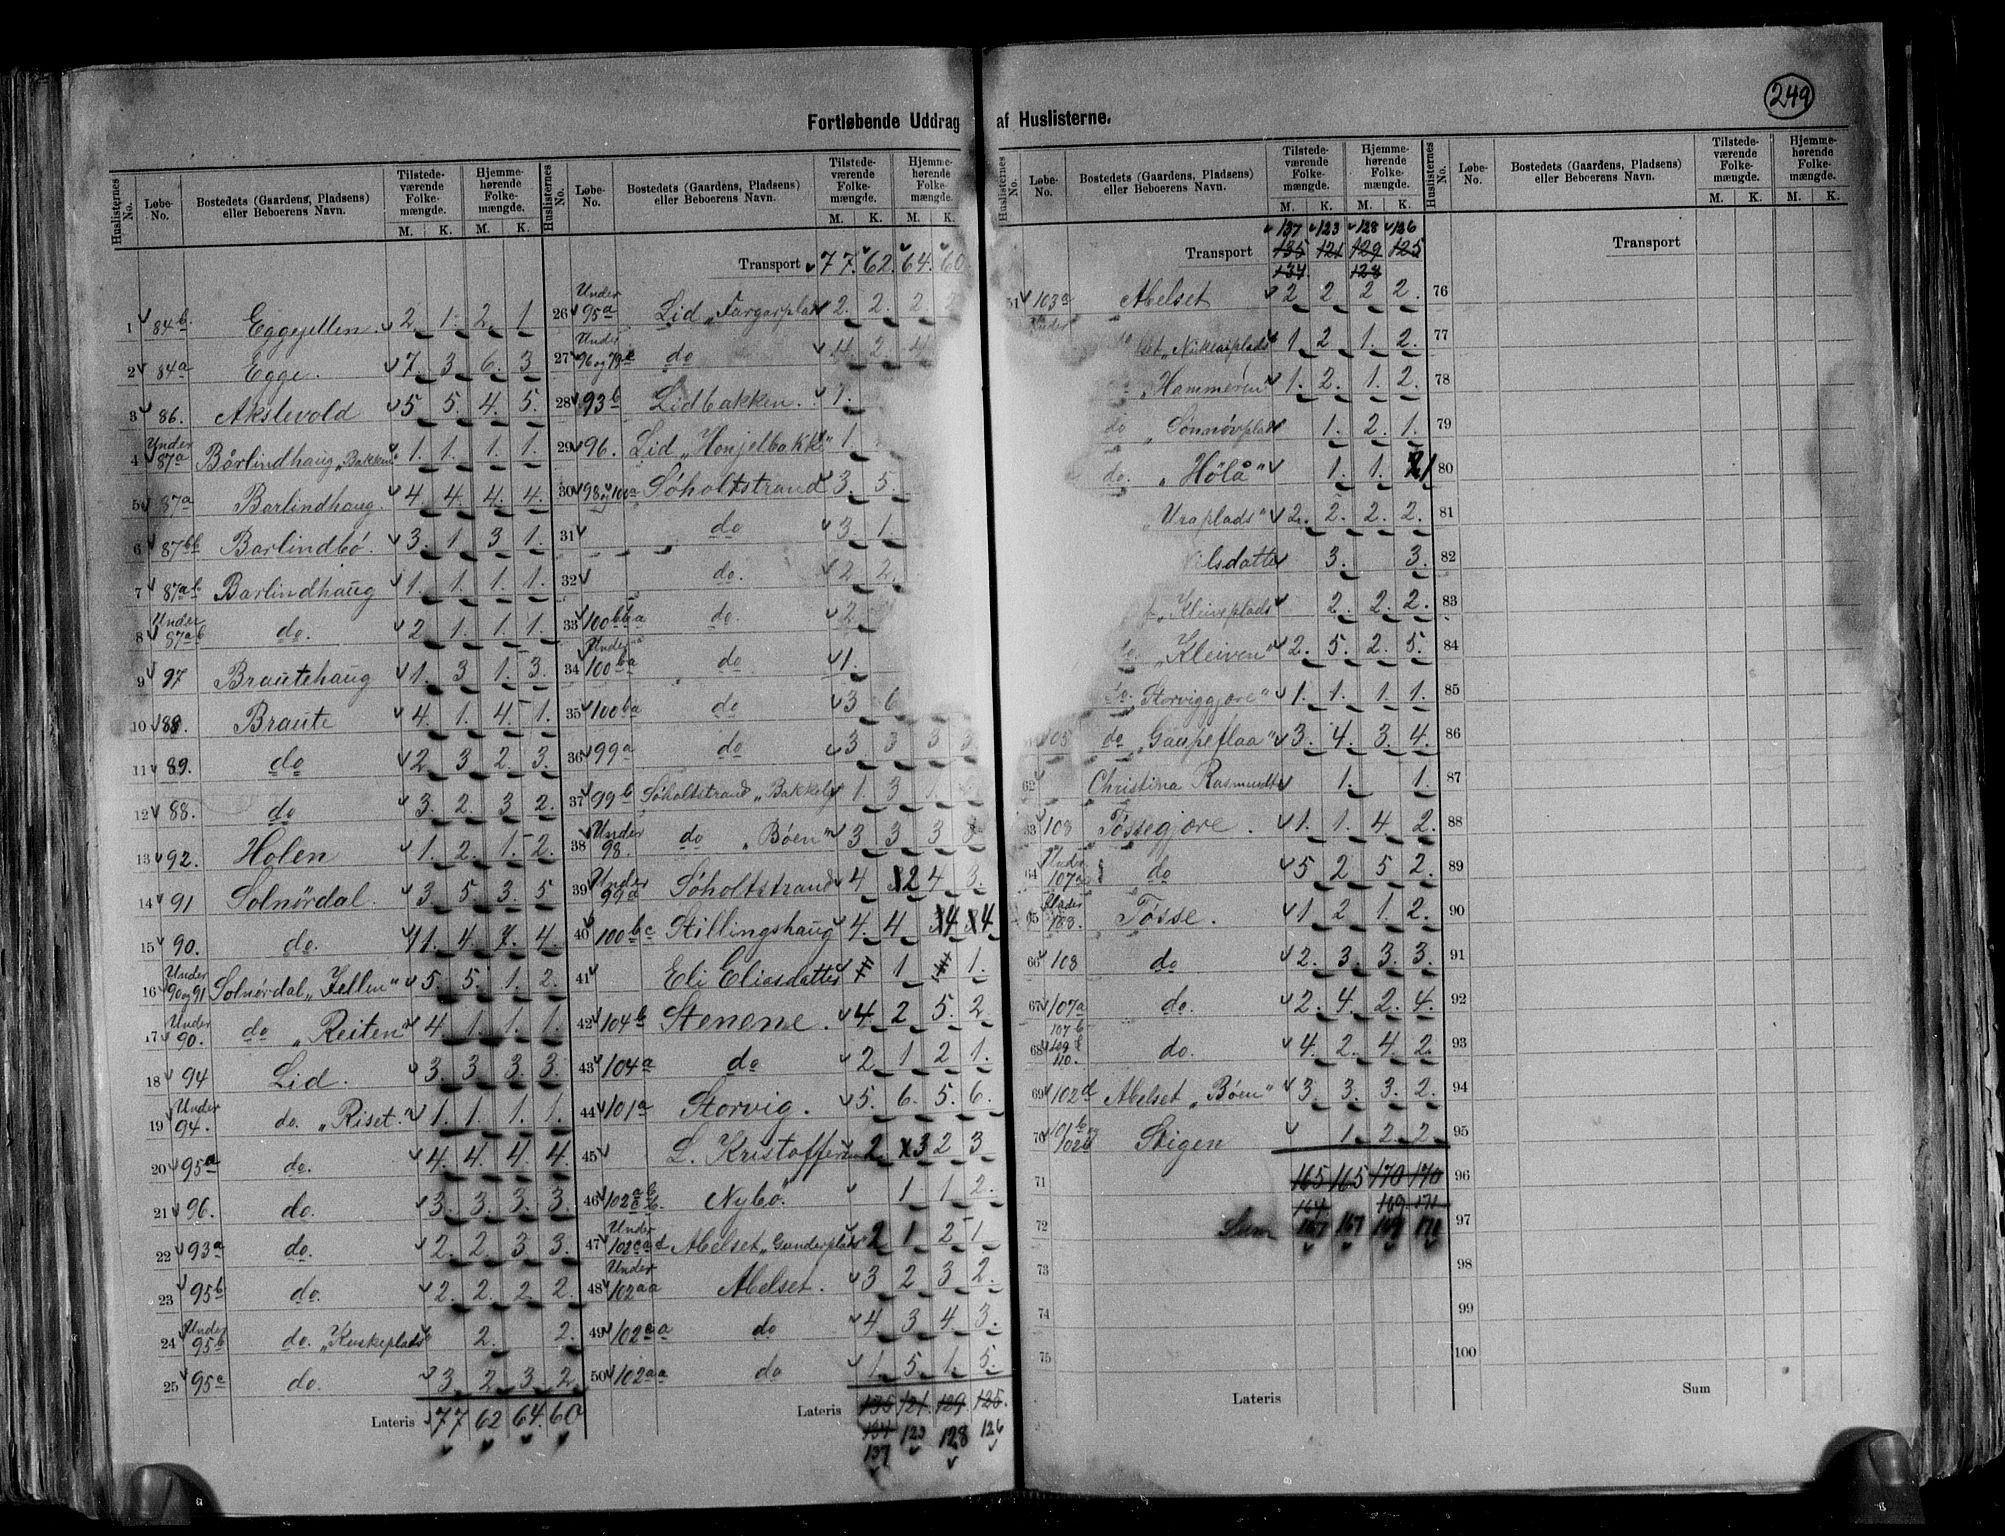 249
Fortløbende Uddrag af Huslisterne.
Huslisternes No. Løbe-No. Bostedets (Gaardens, Pladsens) eller Beboerens Navn. Tilstedeværende Folkemængde. M. K. Hjemmehørende Folkemængde. M. K.
1 84b Eggejellen 2. 1. 2. 1
2 84a Egge. 7. 3. 6. 3
3 86. Akslevold 5. 5. 4. 5.
4 Under 87a Bårlindhaug „Bakken“ 1. 1. 1. 1.
5 87a Barlindhaug. 4. 4. 4. 4.
6 87bb Barlindbø. 3. 1. 3. 1.
7 87ab Barlindhaug 1. 1. 1. 1.
8 Under 87ab do. 2. 1. 1. 1.
9 97 Brautehaug 1. 3 1. 3.
10 Braute 4. 1. 4. 1.
11 89. do 2 3 2 3.
12 88. do 3. 2. 3 2.
13 92. Holen 1. 2. 1. 2.
14 91 Solnørdal. 3. 5 3. 5
15 90. do. 4
16 Under 90og91 Solnørdal „Jellen“ 5. 5. 1. 2.
17 Under 90. do „Reiten“ 4 1. 1. 1.
18 94 Lid. 3. 3. 3. 3.
19 Under 94. do. „Riset.“ 1. 1. 1. 1.
20 95a do. 4. 4. 4. 4.
21 96. do. 3. 3. 3. 3.
22 93a do. 2. 2. 3. 3.
23 95b do. 2. 2. 2. 2.
24 Under 95b do. „Kuskeplads“ 2. 2.
25 95c do. 3. 2. 3. 2.
Lateris 77 62 64. 60
Transport 77. 62. 64. 60
26 Under 95a Lid „Fargarplads 2. 2. 2.
27 Under do 4. 2. 4
28 93b Lidbakken. 1.
29 96. Lid „Honjelbakk“ 1.
30 98og100a Søholtstrand 3. 5.
31 do 3. 1.
32 do. 2 2.
33 100bba do. 2.
34 Under 100ba do 1.
35 100ba do 3 6
36 99a do 3. 3 3 3.
37 99b Søholtstrand „Bakkely 1. 3
38 Under 98. do „Bøen“ 3 3 3
39 Under 99a Søholtstrand 4 2 4 3.
40 100bc Stillingshaug 4. 4 4 4
41 Eli Eliasdatter 1 1.
42 104b Stenene. 4. 2 5. 2
43 104a do 2 1 2 1.
44 101a Storvig. 5. 6. 5. 6.
45 L. Kristoffersen 2 3 2 3
46 Nybø. 1. 1. 2.
47 Under 102aad Abelset „Gunderplads“ 2 1 2 1.
48 Under 102aa Abelset. 3 2 3 2.
49 102aa do 4. 3 4 3.
50 102aa do 1. 5. 1. 5.
Lateris 135 121. 129. 125.
134 123 128 126
137
Huslisternes No. Løbe-No. Bostedets (Gaardens, Pladsens) eller Beboerens Navn. Tilstedeværende Folkemængde. M. K. Hjemmehørende Folkemængde. M. K.
137 123 128 126
Transport 135 121 129 125
134 128
51 103a Abelset 2 2 2 2.
„Niklasplads“ 1 2 1. 2.
„Hammeren“ 1. 2. 1. 2.
do 1. 2. 1.
do. „Hölå“ 1. 1.
„Uraplads“ 2. 2. 2. 2.
Olsdatter 3. 3.
„Kleiveplads 2. 2. 2.
do. „Kleiven“ 2. 5. 2. 5.
do. „Storviggjøre“ 1. 1. 1. 1.
do „Gaupeflaa“ 3. 4. 3. 4.
62 Christina Rasmusdtr 1. 1.
63 108 Tøssegjøre. 1. 1. 4 2.
64 Under 107a do 5 2 5 2.
65 Under Tøsse. 1 2 1. 2.
66 108 do 2. 3. 3. 3.
67 107a do. 2. 4. 2. 4.
68 107b do. 4. 2. 4. 2.
69 102d Abelset „Bøen“ 3. 3. 3. 2.
70 Stigen 1. 2. 2.
71 165 165 170 170
164 169 171
72 Sum 167 167 169 171
73
74
75
Lateris
Transport
76
77
78
79
80
81
82
83
84
85
86
87
88
89
90
91
92
93
94
95
96
97
98
99
100
Sum